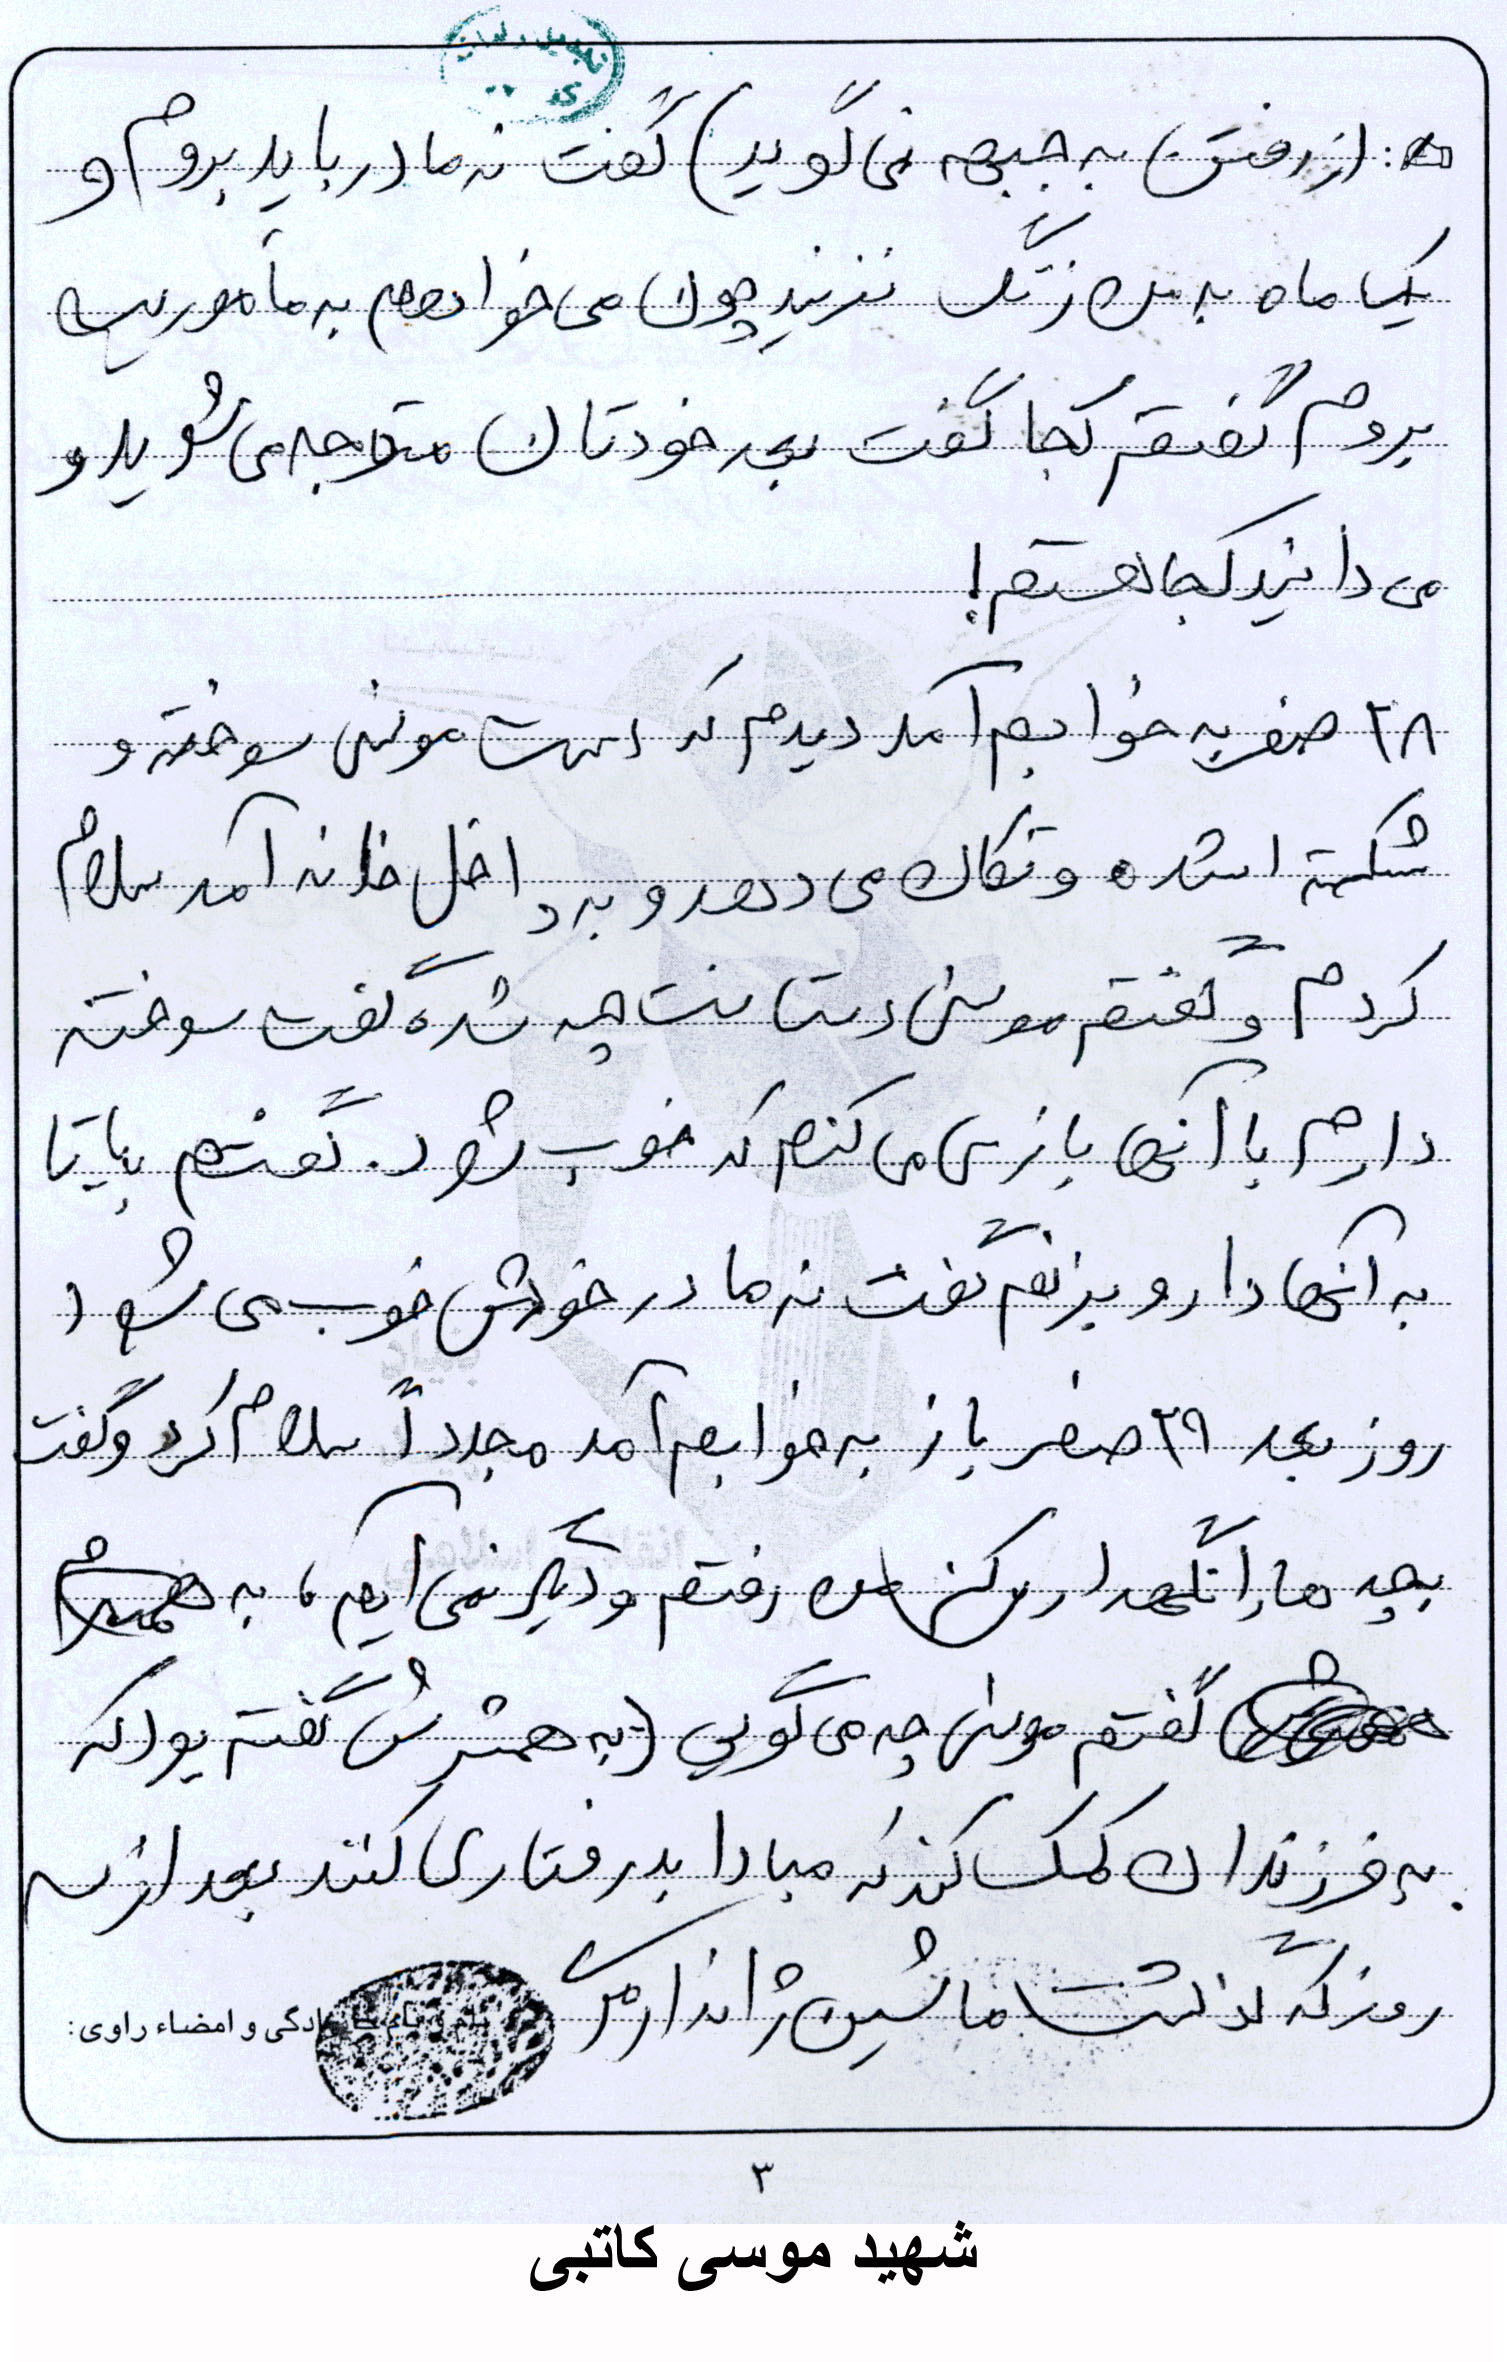 (از رفتن به جبهه نمی گوید) گفت نه مادر باید بروم و
یک ماه به من زنگ نزنید چون می خواهم به مأموریت
بروم گفتم کجا گفت بعد خودتان متوجه می شوید و
می دانید کجا هستم!
۲۸ صفر به خوابم آمد دیدم که دست موسی سوخته و
شکسته شده و تکان می دهد و به داخل خانه آمد سلام
کردم و گفتم موسی دستانت چه شده گفت سوخته
دارم با آنها بازی می کنم که خوب شود. گفتم بیا تا
به آنها دارو بزنم گفت نه مادر خودش خوب می شود
روز بعد ۲۹ صفر باز به خوابم آمد مجدداً سلام کرد و گفت
بچه ها را نگهداری کن من رفتم و دیگر نمی آیم، به
گفتم موسی چه می گویی (به همشرش گفته بود که
به فرزندان کمک کند که مبادا بدرفتاری کنند بعد از سه
روز که گذشت ماشین ژاندارمری
نام و نام خانوادگی و امضاء راوی:
۳
شهید موسی کاتبی